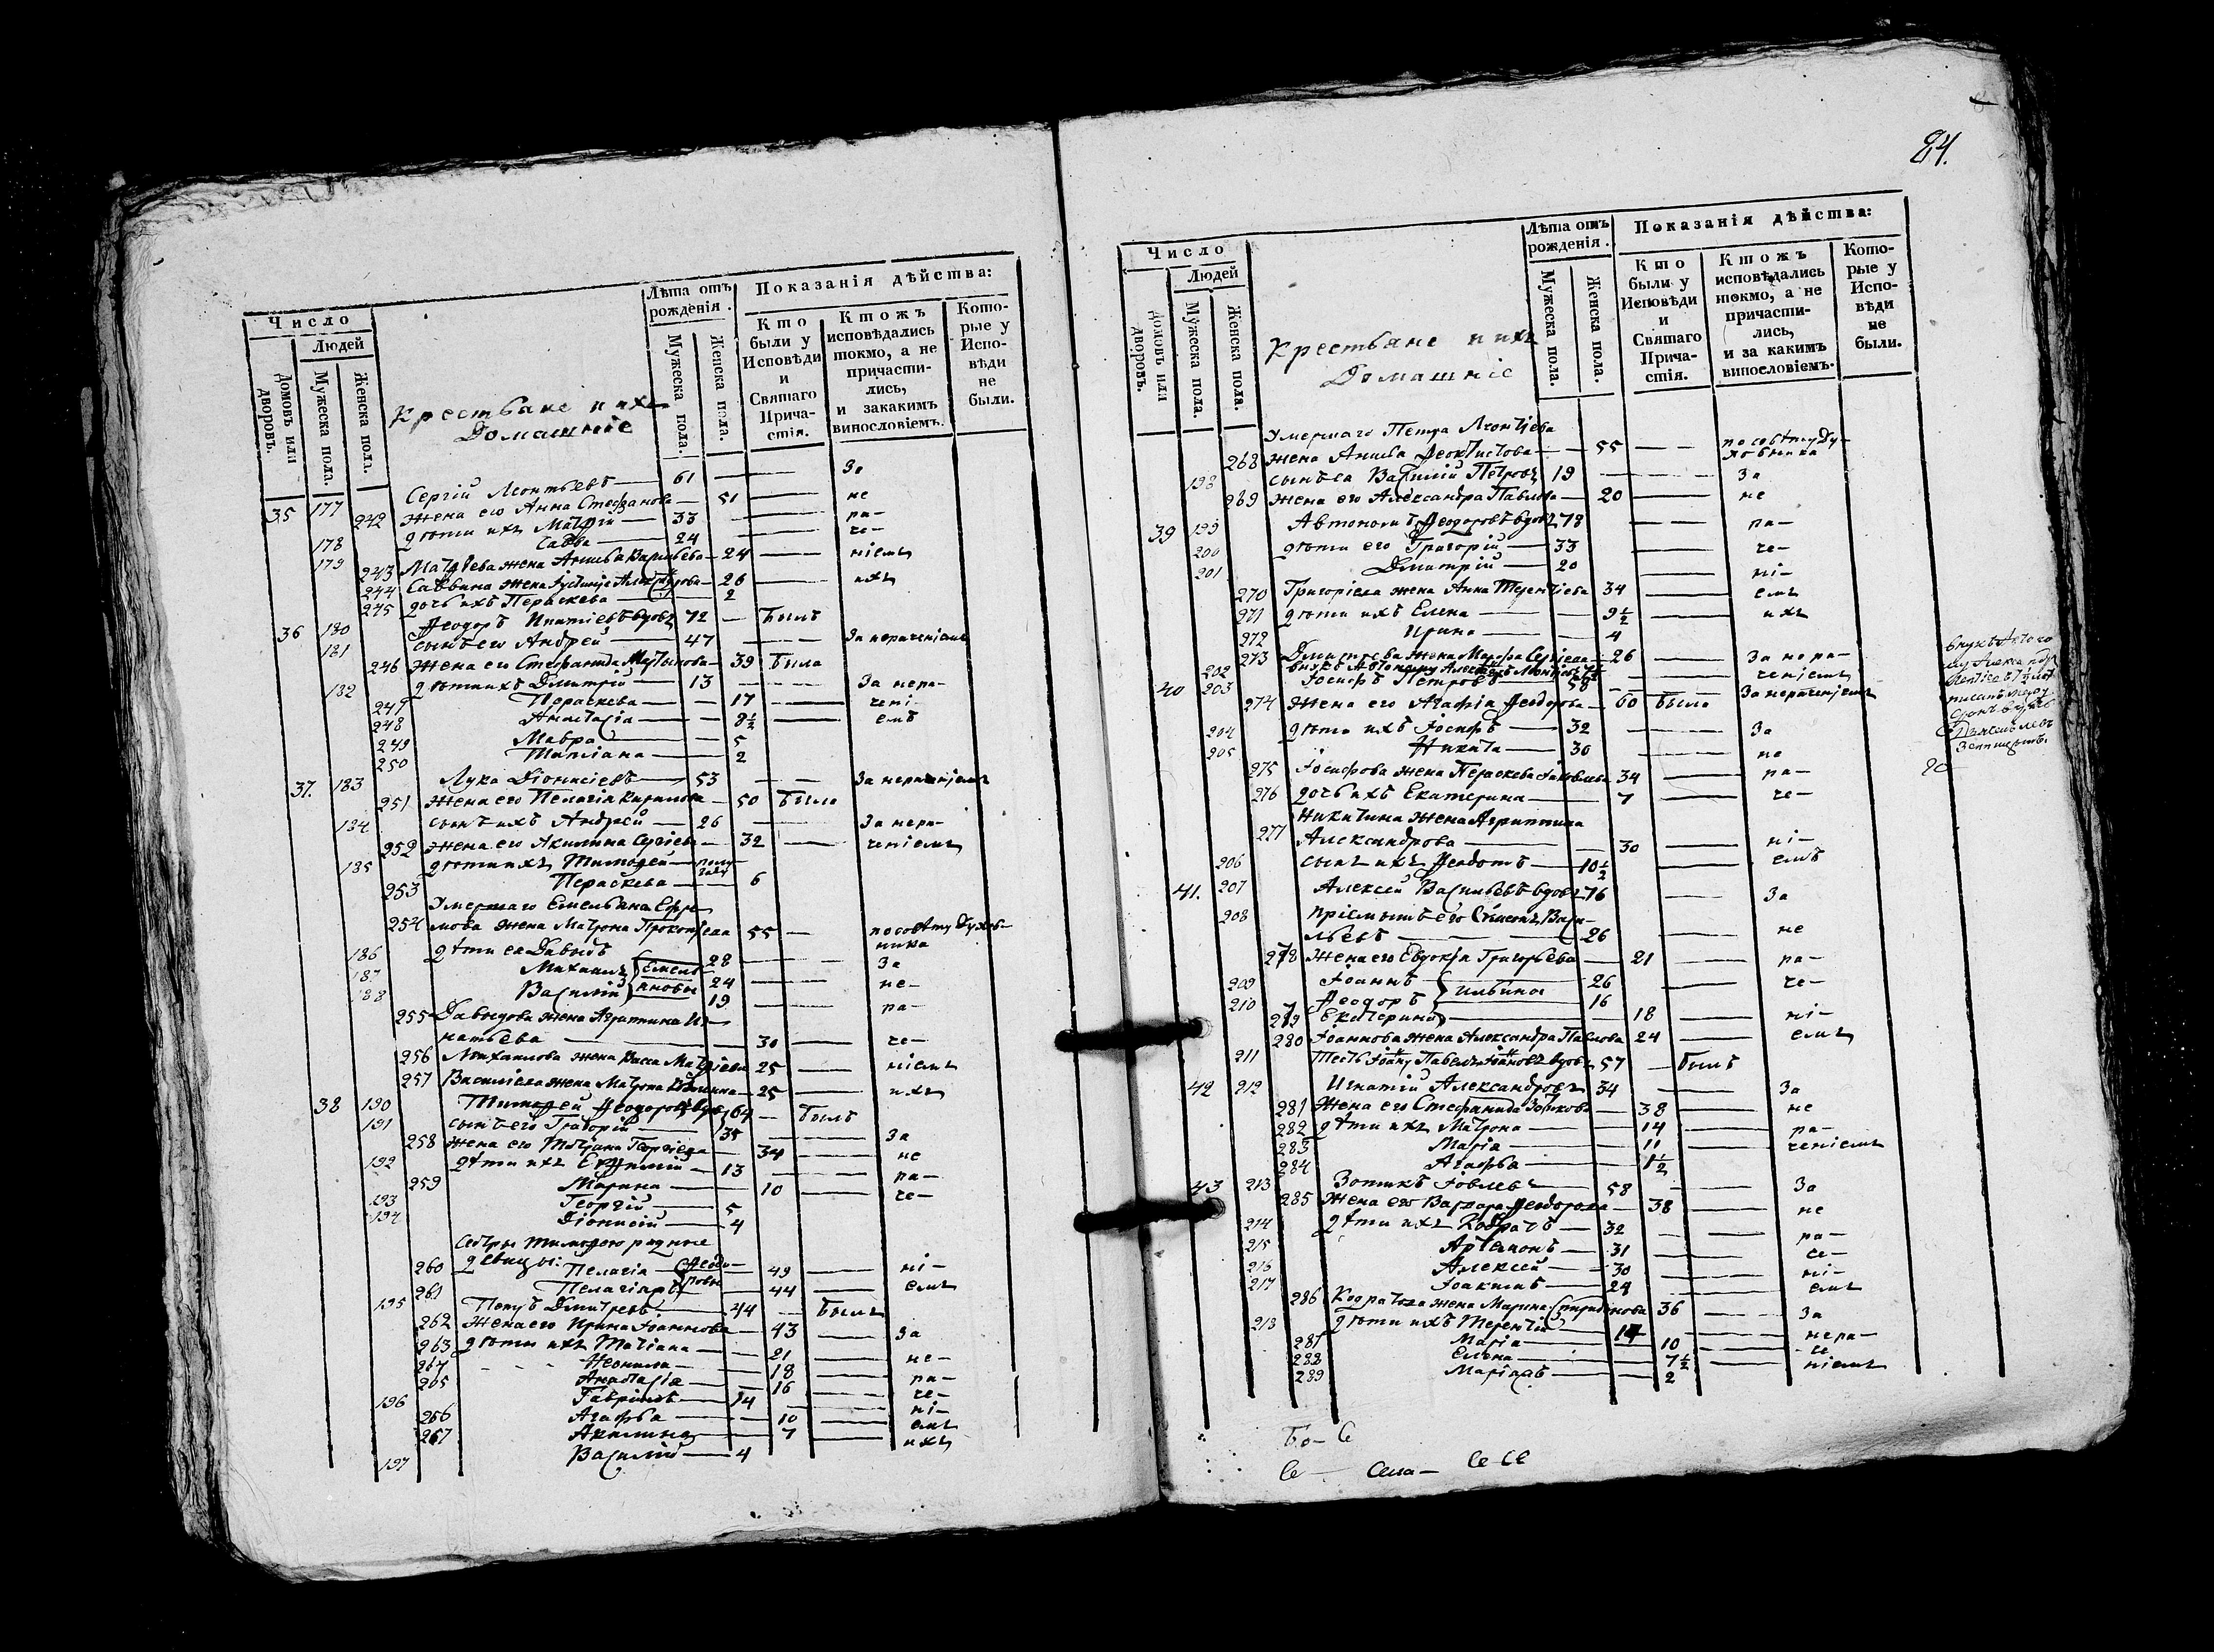 Число
Людей
Домовъ или дворовъ.
Мужеска пола.
Женска пола.
Крестьяне и ихъ
Домашніе
Лѣта отъ рожденія.
Мужеска пола.
Женска пола.
Показанія дѣйства:
Кто были у Исповѣди и Святаго Причастія.
Ктожъ исповѣдались токмо, а не причастились, и закакимъ винословіемъ.
Которые у Исповѣди не были.
35 177 Сергій Леонтьевъ — 61 — За
242 жена его Анна Стефанова — 51 — не
178 дѣти ихъ — 33 — ра-
179 Савва — 24 — че-
243 жена Анисья Васильева — 24 — ніемъ
244 Саввина жена — 26 — ихъ
245 дочь ихъ Параскева — 2
36 180 Ѳеодоръ Ипатіевъ вдовъ 72 — былъ
181 сынъ его Андрей — 47 — За нераченіемъ
246 жена его Стефанида — 39 была
182 дѣти ихъ Димитрій — 13 — За нера-
247 Параскева — 17 — чені-
248 Анастасія — 8½ — емъ
249 Мавра — 5
250 Татіана — 2
37. 183 Лука Діонисіевъ — 53 — За нераченіемъ
251 жена его Пелагія — 50 была
184 сынъ ихъ Андрей — 26 — За нера-
252 жена его Акилина Сергіева — 32 — ченіемъ
185 дѣти ихъ Тимоѳей — полу года
253 Параскева — 6
Умершаго Емельяна Ефре-
254 мова жена Матрона Прокопіева 55 — по совѣту духов-
ника
186 дѣти ея Давыдъ 28 — За
187 Михаилъ Емель 24 — не-
188 Василій яновы 19 — ра-
255 Давыдова жена Агриппина Иг-
натьева — 30 — че-
256 Михаилова жена Васса — 25 — ніемъ
257 Василіева жена Матрона — 25 — ихъ
38 190 Тимоѳей Ѳеодоровъ вдовъ 64 — былъ
191 сынъ его Григорій — 35 — За
258 жена его Татіана Георгіева — 34 — не
192 дѣти ихъ Евѳимій — 13 — ра-
259 Марина — 10 — че-
193 Георгій — 5
194 Діонисій — 4
Сестры Тимоѳею родные
260 дѣвицы: Пелагія Ѳеодо- 49 — ні-
261 Пелагія ровы 44 — емъ
195 Дмитріевъ — 44 — былъ
262 жена его Ирина Іоаннова — 43 — За
263 дѣти ихъ Татіана — 21 — не-
264 Неонила — 18 — ра-
265 Анастасія — 16 — че-
196 Гавріилъ — 14 — ні-
266 Агафья — 10 — емъ
267 Акилина — 7 — ихъ
197 Василій — 4
84.
Число
Людей
Домовъ или дворовъ.
Мужеска пола.
Женска пола.
Крестьяне и ихъ
Домашніе
Лѣта отъ рожденія.
Мужеска пола.
Женска пола.
Показанія дѣйства:
Кто были у Исповѣди и Святаго Причастія.
Ктожъ исповѣдались токмо, а не причастились, и за какимъ винословіемъ.
Которые у Исповѣди не были.
Умершаго Петра Леонтіева
268 жена Анисья Ѳеоктистова — 55 — по совѣту ду-
ховника
198 сынъ ея Василій Петровъ 19 — За
269 жена его Александра Павлова — 20 — не
39 199 Автономъ Ѳеодоровъ вдовъ 78 — ра-
200 дѣти его Григорій — 33 — че-
201 Дмитрій — 20 — ні-
270 Григоріева жена Анна Терентіева 34 — емъ
271 дѣти ихъ Елена — 9½ — ихъ
272 Ирина — 4
273 Дмитріева жена Марѳа Сергіева — 26 — За нера-
202 внукъ Автоному — ченіемъ
40 203 Іосифъ Петровъ 58 — За нераченіемъ
274 жена его Агафія Ѳеодорова — 60 была
204 дѣти ихъ Іосифъ — 32 — За
205 Никита — 30 — не
275 Іосифова жена Параскева Іаковлева 34 — ра-
276 дочь ихъ Екатерина — 7 — че-
Никитина жена Агриппина
277 Александрова — 30 — ні-
206 сынъ ихъ Ѳеодотъ — 10½ — емъ
41. 207 Алексей Васильевъ вдовъ 76 — За
208 пріемышъ его Симеонъ Васи-
льевъ — 26 — не
278 жена его Евдокія Григорьева — 21 — ра-
209 Іоаннъ Ильины 26 — че-
210 Ѳеодоръ 16
279 Екатерина — 18 — ні-
280 Іоаннова жена Александра Павлова 24 — емъ
211 Тесть Іоанну Павелъ Іоанновъ вдовъ 57 — былъ
42 212 Игнатій Александровъ 34 — За
281 жена его Стефанида — 38 — не
282 дѣти ихъ Матрона — 14 — ра-
283 Марія — 11 — ченіемъ
284 Агафья — 1½
43 213 Зотикъ Іовлевъ 58 — За
285 жена его Варвара Ѳеодорова — 38 — не
214 дѣти ихъ Кодратъ — 32 — ра-
215 Артемонъ — 31 — че-
216 Алексей — 30 — ні-
217 Іоакимъ — 24 — емъ
286 Кодратова жена Марина Спиридонова 36 — За
218 дѣти ихъ Терентій — 14 — нера-
287 Марія — 10 — че
288 Елена — 7½ — ніемъ
289 — 2